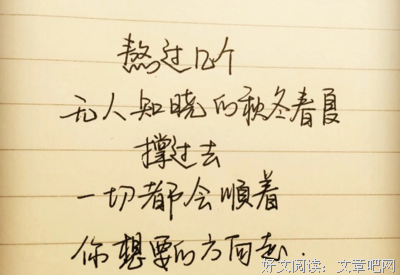 熬过几个
无人知晓的秋冬春夏
撑过去
一切都会顺着
你想要的方向走.
好文阅读：文章吧网